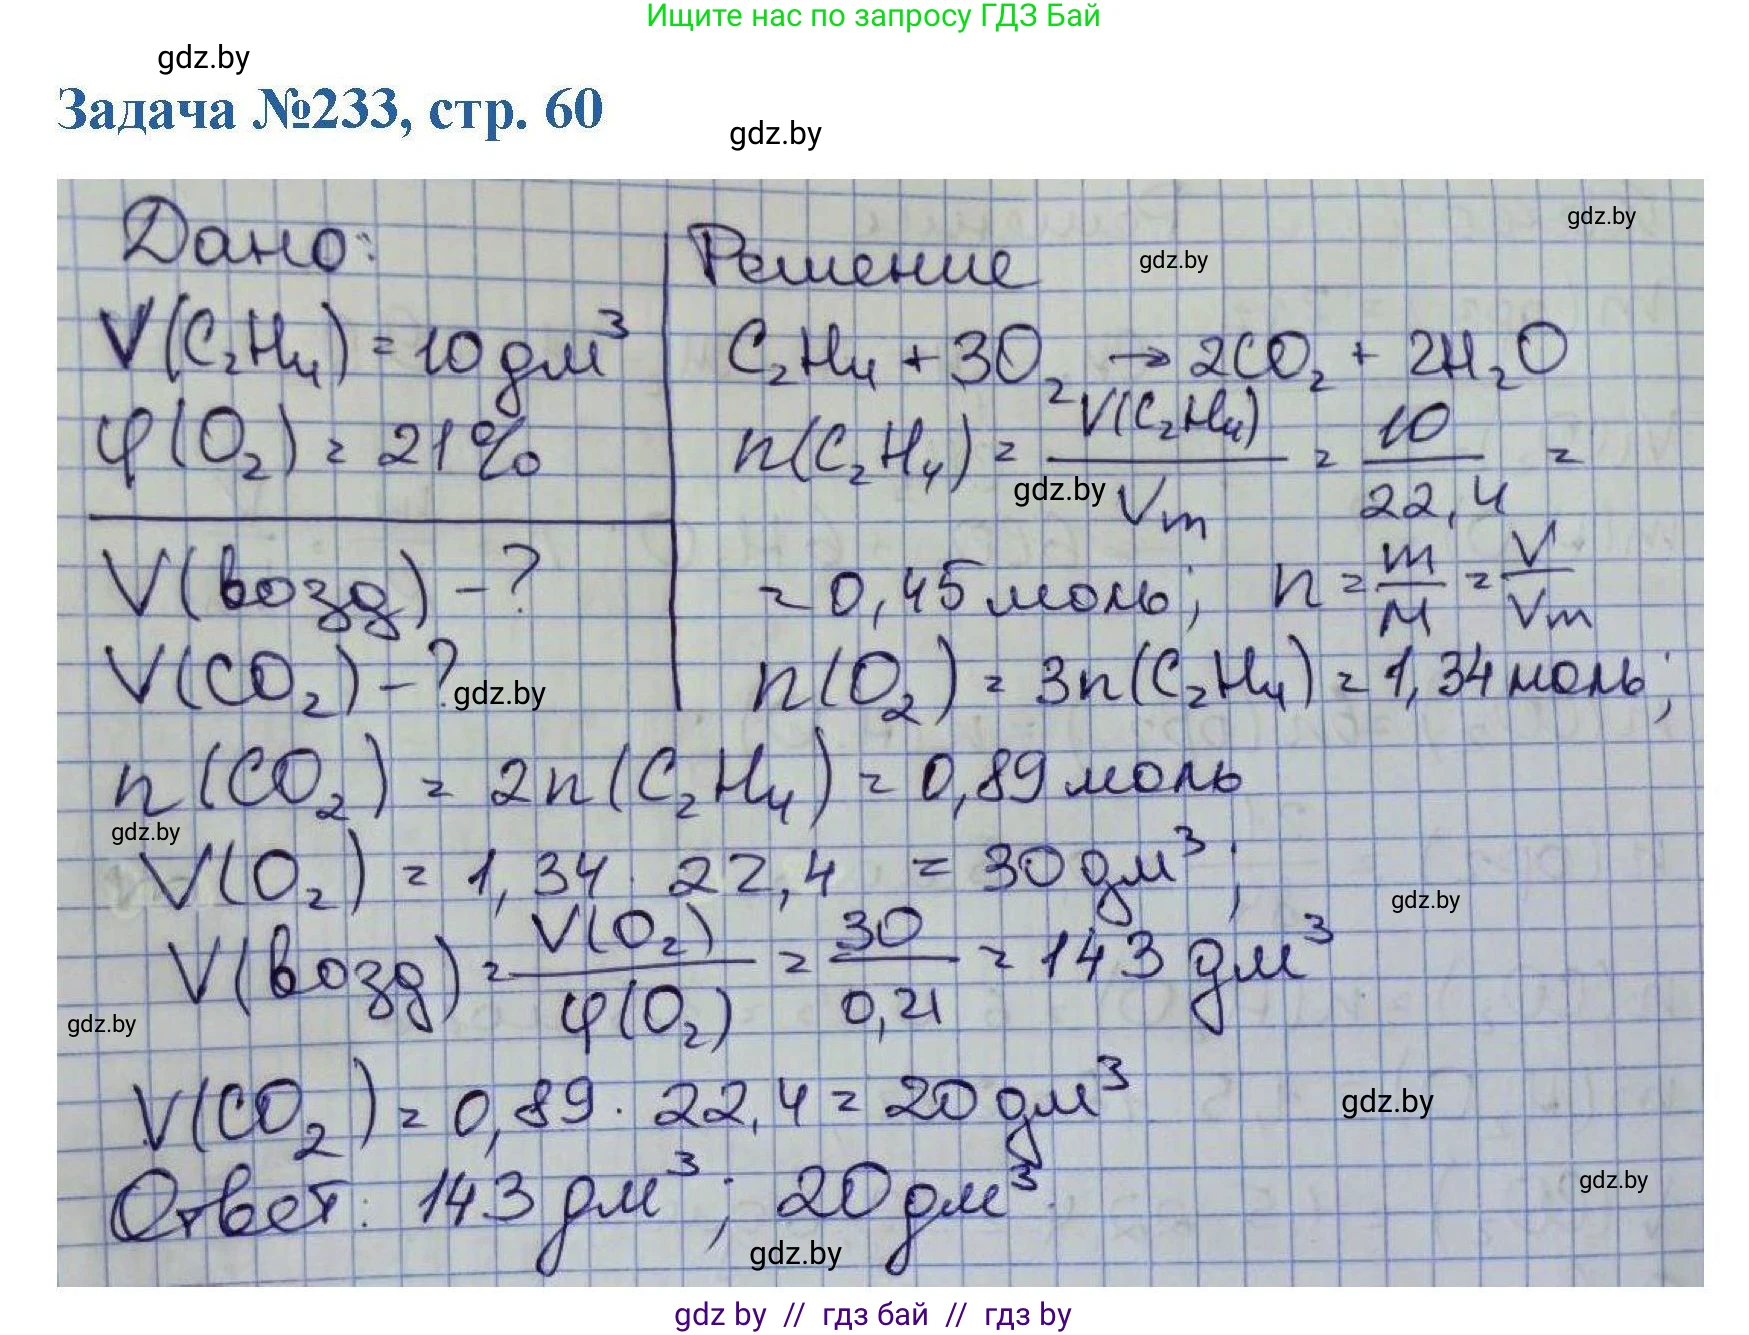 Ищите нас по запросу ГДЗ Бай
gdz.by
Задача №233, стр. 60
gdz.by
Дано:
V(C₂H₄) = 10 дм³
φ(O₂) = 21%
V(возд) - ?
V(CO₂) - ?
gdz.by
Решение
gdz.by
gdz.by
C₂H₄ + 3O₂ → 2CO₂ + 2H₂O
n(C₂H₄) = V(C₂H₄)/Vm = 10/22,4 =
gdz.by
= 0,45 моль; n = m/M = V/Vm
n(O₂) = 3n(C₂H₄) = 1,34 моль;
n(CO₂) = 2n(C₂H₄) = 0,89 моль
gdz.by
V(O₂) = 1,34 · 22,4 = 30 дм³;
gdz.by
V(возд) = V(O₂)/φ(O₂) = 30/0,21 = 143 дм³
gdz.by
V(CO₂) = 0,89 · 22,4 = 20 дм³
gdz.by
Ответ: 143 дм³; 20 дм³.
gdz.by
gdz.by
gdz by // гдз бай // gdz by